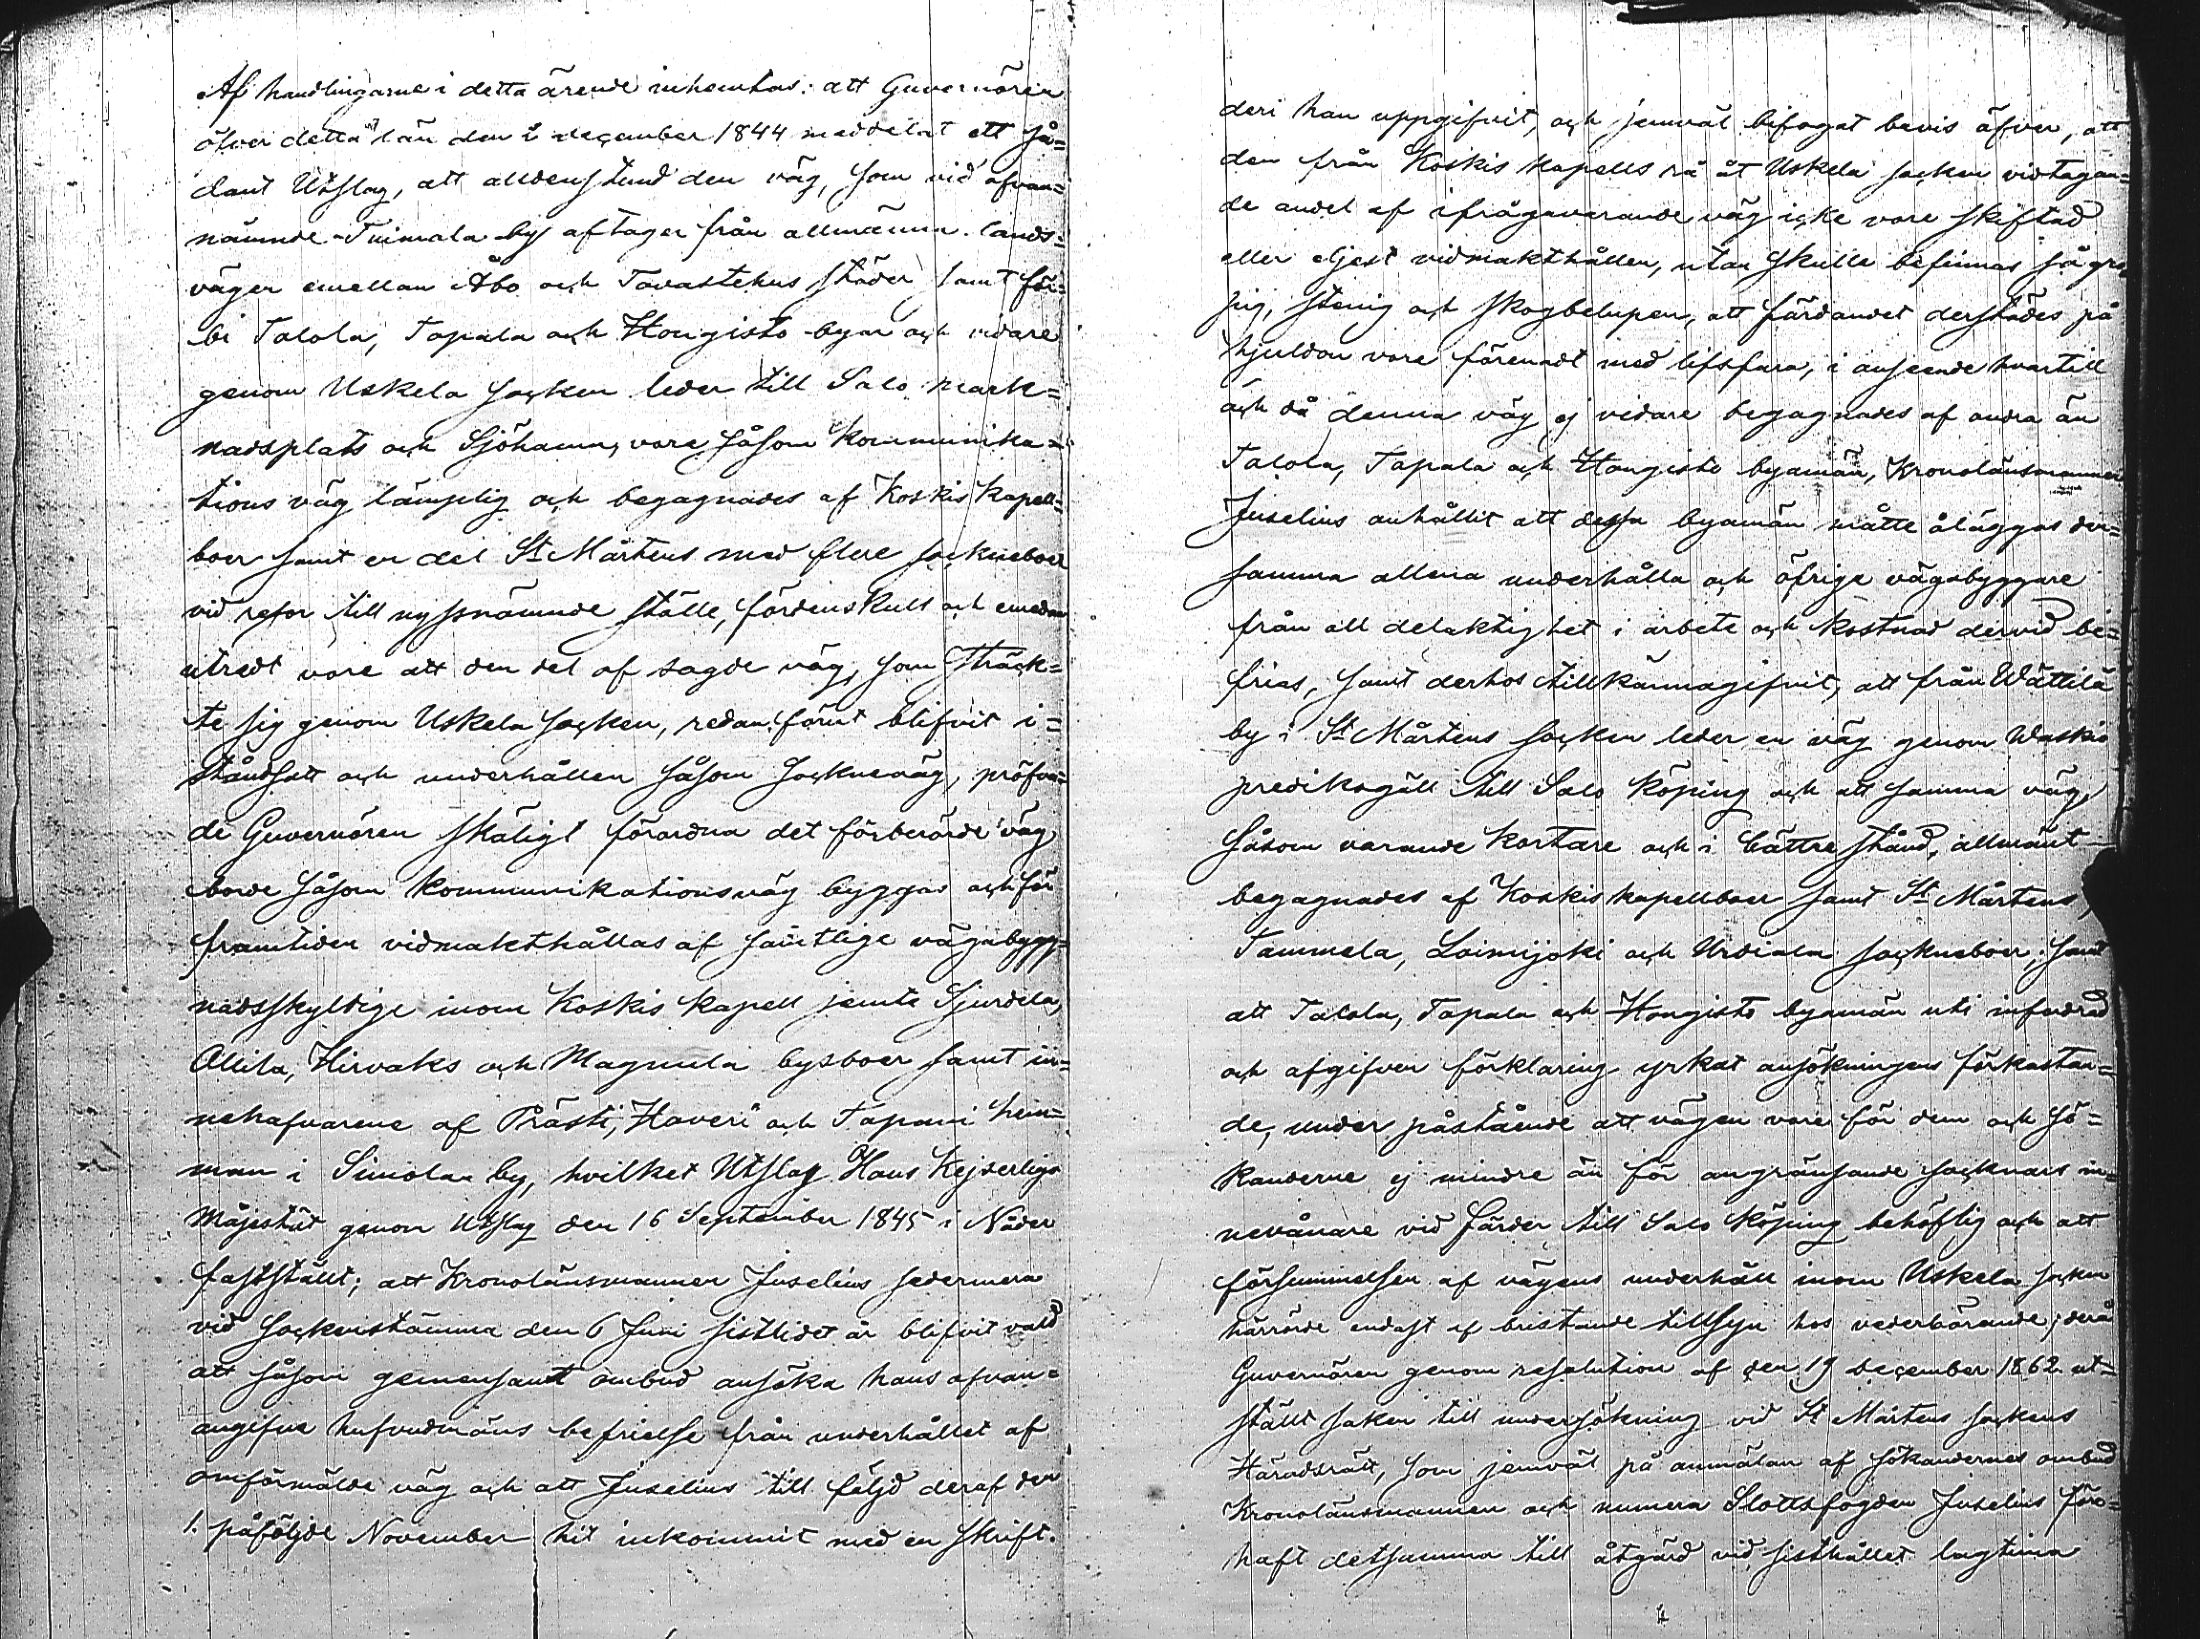 Af handlingarne i detta ärende inhemtas: att Guvernören
öfver detta län den 2 december 1844 meddelat ett så=
dant Utslag, att alldenstund den väg, som vid ofvan=
nämnde Tuimala by aftager från allmänna lands=
vägen emellan Åbo och Tavastehus städer samt för=
bi Talola, Tapala och Hongisto byar och vidare
genom Uskela socken leder till Salo mark=
nadsplats och Sjöhamn, vore såsom kommunika=
tions väg lämplig och begagnades af Koskis kapell=
boer samt en del St Mårtens med flere sockneboer
vid resor till nyssnämnde ställe, fördenskull och emedan
utredt vore att den del af sagde väg, som sträck=
te sig genom Uskela socken, redan förut blifvit i=
ståndsatt och underhållen såsom sockneväg, pröfva=
de Guvernören skäligt förordna det förberörde väg
borde såsom kommunikationsväg byggas och för
framtiden vidmakthållas af samtlige vägabygg=
nadsskyldige inom Koskis kapell jemte Sjurdela,
Ollila, Hirvaks och Magnula bysboer samt in=
nehafvarene af Prästi, Haveri och Tapani hem=
man i Simola by, hvilket Utslag Hans Kejserliga
Majestät genom Utslag den 16 September 1845 i Nåder
fastställt; att Kronolänsmannen Juselius sedermera
vid sockenstämma den 6 Juni sistlidet år blifvit vald
att såsom gemensamt ombud ansöka hans ofvan=
angifne hufvudmäns befrielse från underhållet af
omförmälde väg och att Juselius till följd deraf den
1. påföljde November hit inkommit med en skrift.
deri han uppgifvit, och jemväl bifogat bevis öfver, att
den från Koskis kapells rå åt Uskela socken vidtagan=
de andel af ifrågavarande väg icke vore skiftad
eller eljest vidmakthållen, utan skulle befinnas så gro
pig, stenig och skogbelupen, att färdandet derstädes på
hjuldon vore förenadt med lifsfara, i anseende hvartill
och då denna väg ej vidare begagnades af andra än
Talola, Tapala och Hongisto byamän, Kronolänsmannen
Juselius anhållit att dessa byamän måtte åläggas den=
samma allena underhålla och öfrige vägabyggare
från all delaktighet i arbete och kostnad dervid be=
frias, samt derhos tillkännagifvit, att från Wättilä
by i St Mårtens socken leder en väg genom Waskio
predikogäll till Salo köping och att samma väg,
såsom varande kortare och i bättre stånd, allmänt
begagnades af Koskis kapellboer samt St Mårtens,
Tammela, Loimijoki och Urdiala sockneboer; samt
att Talola, Tapala och Hongisto byamän uti infordrad
och afgifven förklaring yrkat ansökningens förkastan=
de, under påstående att vägen vore för dem och sö=
kanderne ej mindre än för angränsande socknars in=
nevånare vid färder till Salo köping behöflig och att
försummelsen af vägens underhåll inom Uskela socken
härrörde endast af bristande tillsyn hos vederbörande; derå
Guvernören genom resolution af den 19 december 1862 ut=
ställt saken till undersökning vid St Mårtens sockens
Häradsrätt, som jemväl på anmälan af sökandernes ombud
Kronolänsmannen och numera Slottsfogden Juselius före=
haft detsamma till åtgärd vid sisthållet lagtima